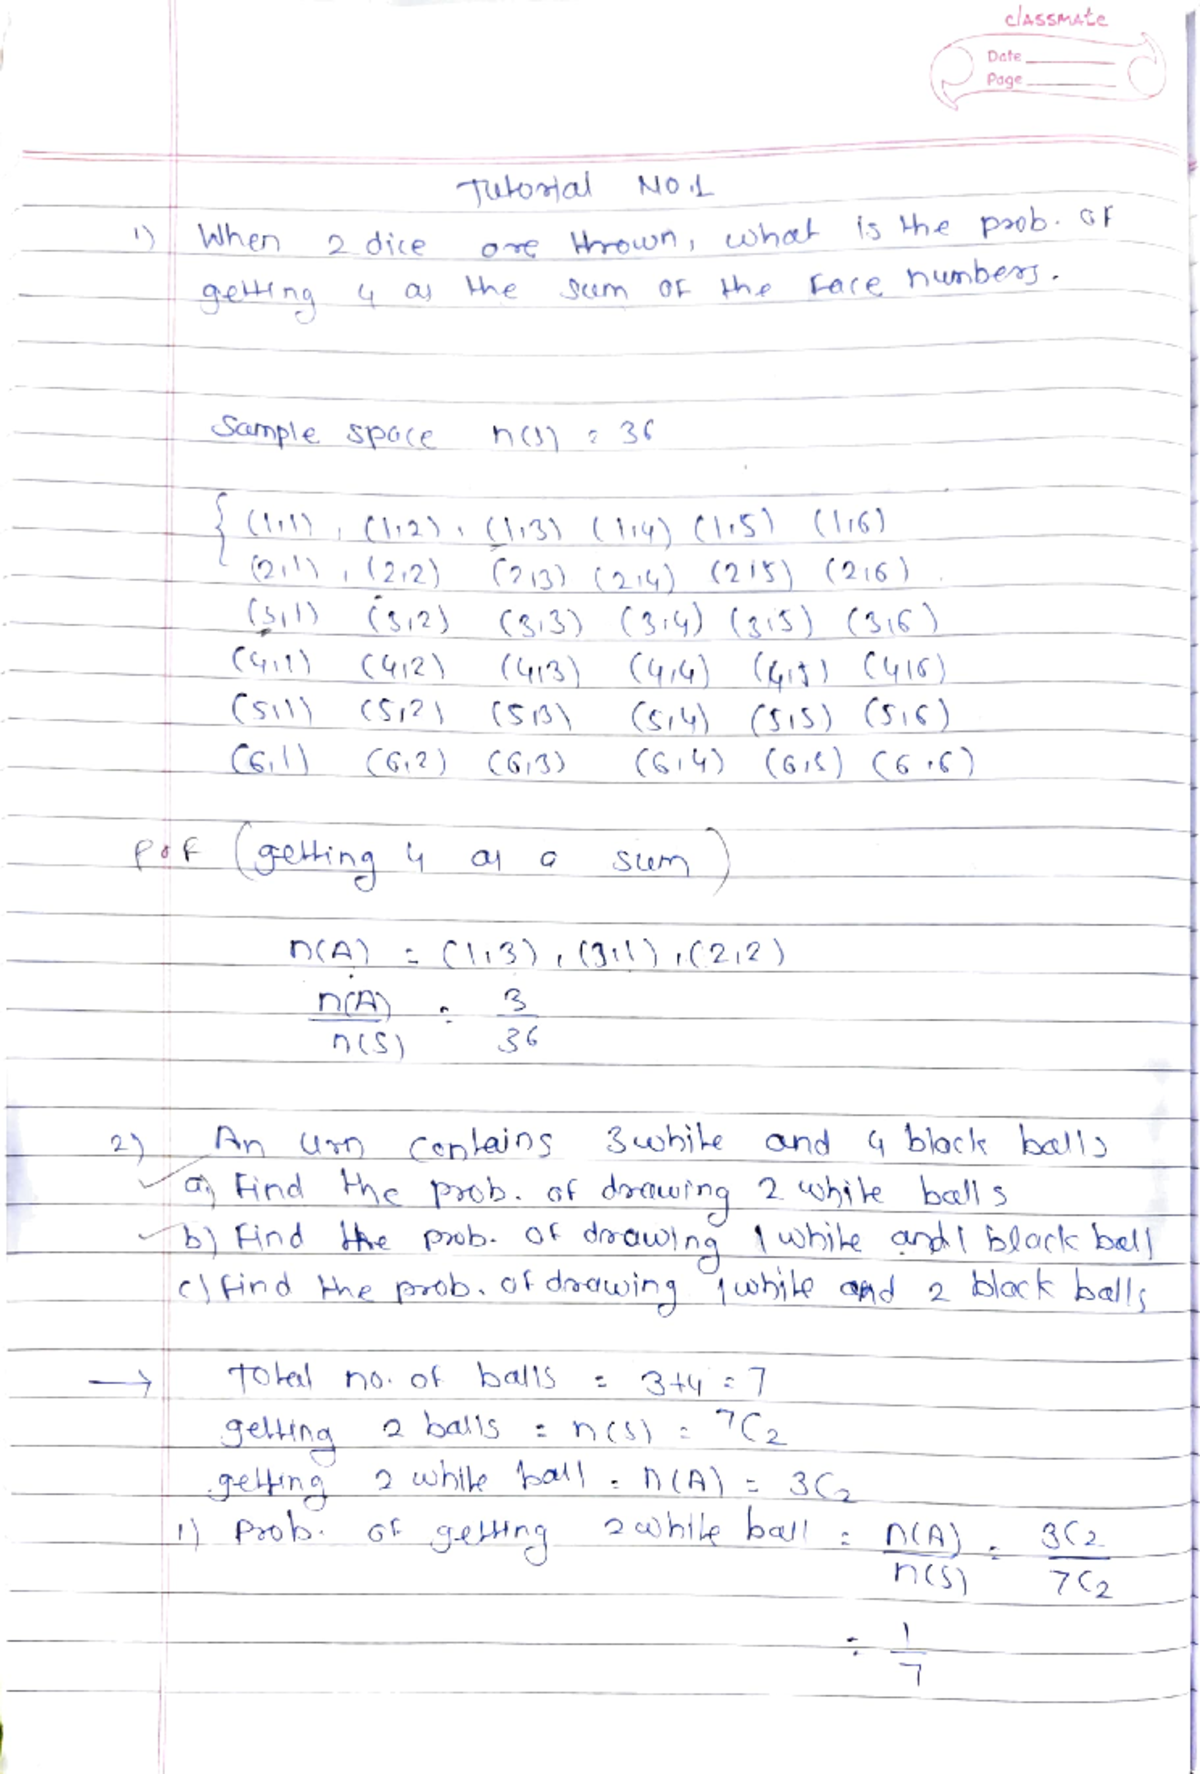 classmate
Date
Page
Tutorial No.1
1) When 2 dice are thrown, what is the prob. of
getting 4 as the sum of the face numbers.
Sample space n(s) = 36
{ (1,1), (1,2), (1,3) (1,4) (1,5) (1,6)
(2,1), (2,2) (2,3) (2,4) (2,5) (2,6)
(3,1) (3,2) (3,3) (3,4) (3,5) (3,6)
(4,1) (4,2) (4,3) (4,4) (4,5) (4,6)
(5,1) (5,2) (5,3) (5,4) (5,5) (5,6)
(6,1) (6,2) (6,3) (6,4) (6,5) (6,6)
P of (getting 4 as a sum)
n(A) = (1,3), (3,1), (2,2)
n(A) = 3
n(S) 36
2) An urn contains 3 white and 4 black balls
a) Find the prob. of drawing 2 white balls
b) Find the prob. of drawing 1 white and 1 black ball
c) find the prob. of drawing 1 white and 2 black balls
→ Total no. of balls = 3+4 = 7
getting 2 balls = n(s) = 7C2
getting 2 white ball = n(A) = 3C2
1) Prob. of getting 2 white ball = n(A) = 3C2
n(s) 7C2
= 1
7